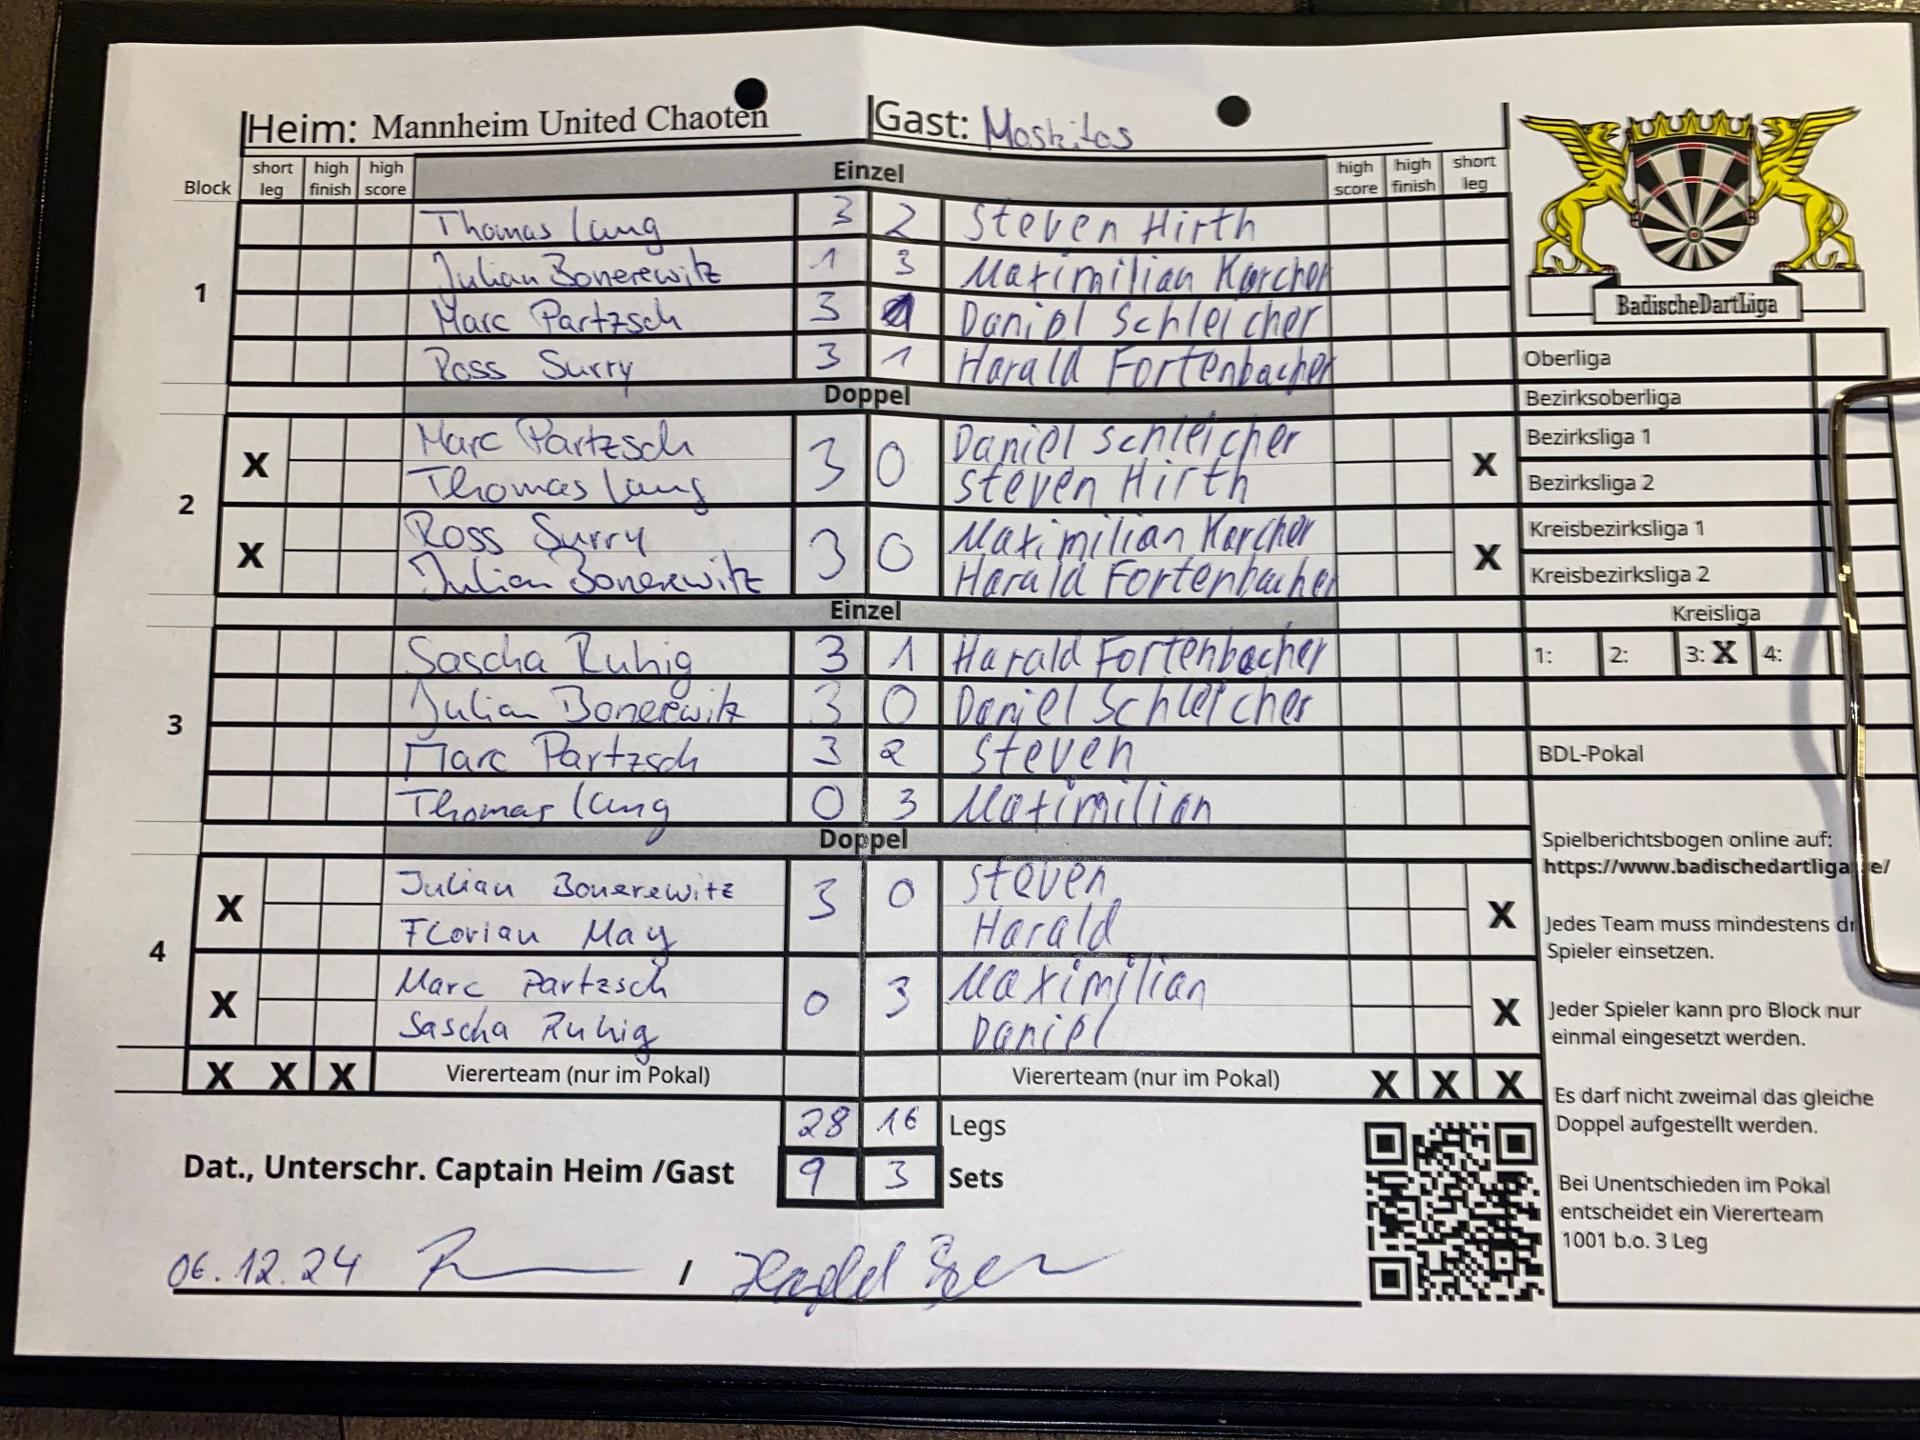 Heim: Mannheim United Chaoten Gast: Moskitos
Block short leg high finish high score Einzel high score high finish short leg
1
Thomas Lang 3 2 Steven Hirth
Julian Bonerewitz 1 3 Maximilian Karcher
Marc Partzsch 3 Daniel Schleicher
Ross Surry 3 1 Harald Fortenbacher
Doppel
2
X Marc Partzsch 3 0 Daniel Schleicher X
Thomas Lang Steven Hirth
X Ross Surry 3 0 Maximilian Karcher X
Julian Bonerewitz Harald Fortenbacher
Einzel
3
Sascha Ruhig 3 1 Harald Fortenbacher
Julian Bonerewitz 3 0 Daniel Schleicher
Marc Partzsch 3 2 Steven
Thomas Lang 0 3 Maximilian
Doppel
4
X Julian Bonerewitz 3 0 Steven X
Florian May Harald
X Marc Partzsch 0 3 Maximilian X
Sascha Ruhig Daniel
X X X Viererteam (nur im Pokal) Viererteam (nur im Pokal) X X X
28 16 Legs
Dat., Unterschr. Captain Heim /Gast 9 3 Sets
06.12.24 /
BadischeDartLiga
Oberliga
Bezirksoberliga
Bezirksliga 1
Bezirksliga 2
Kreisbezirksliga 1
Kreisbezirksliga 2
Kreisliga
1: 2: 3: X 4:
BDL-Pokal
Spielberichtsbogen online auf:
https://www.badischedartliga e/
Jedes Team muss mindestens dr
Spieler einsetzen.
Jeder Spieler kann pro Block nur
einmal eingesetzt werden.
Es darf nicht zweimal das gleiche
Doppel aufgestellt werden.
Bei Unentschieden im Pokal
entscheidet ein Viererteam
1001 b.o. 3 Leg